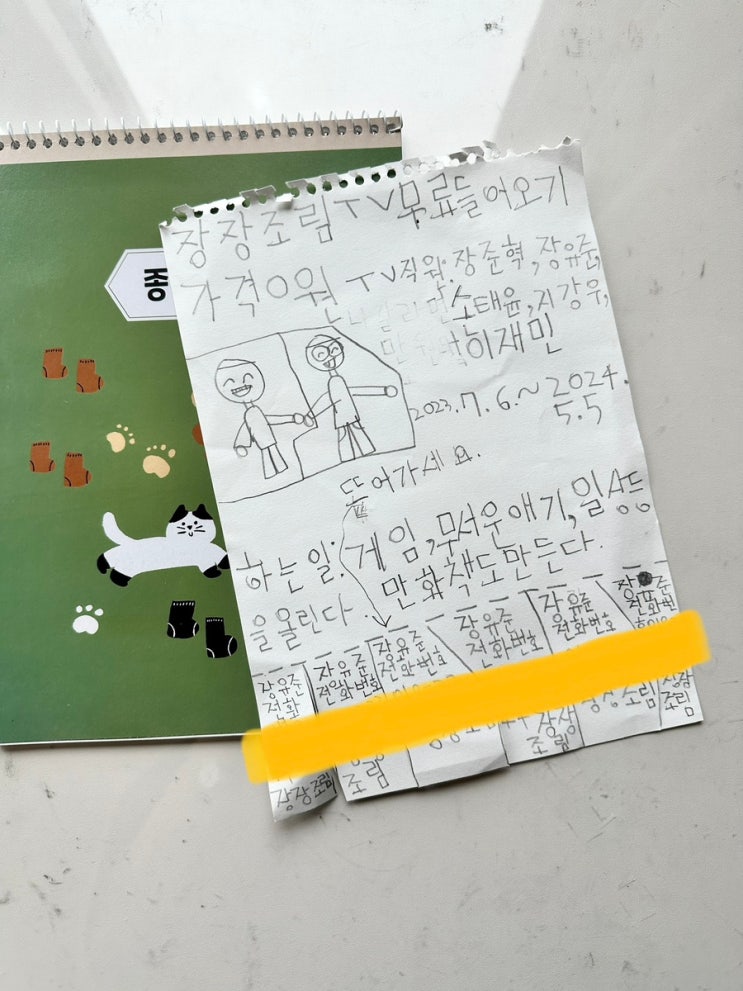 장장조림TV무료들어오기
가격0원
TV직원: 장준혁, 장유준,
소태윤, 지강우,
이재민
2023.7.6.~2024.
5.5
뜯어가세요.
하는일: 게임, 무서운얘기, 일상등
을올린다
만화책도만든다.
장유준
전화
장장조림
장유준
전화번호
조림
장유준
전화번호
장유준
전화번호
장장
조림
장유준
전화번호
조림
전화번
장장
조림